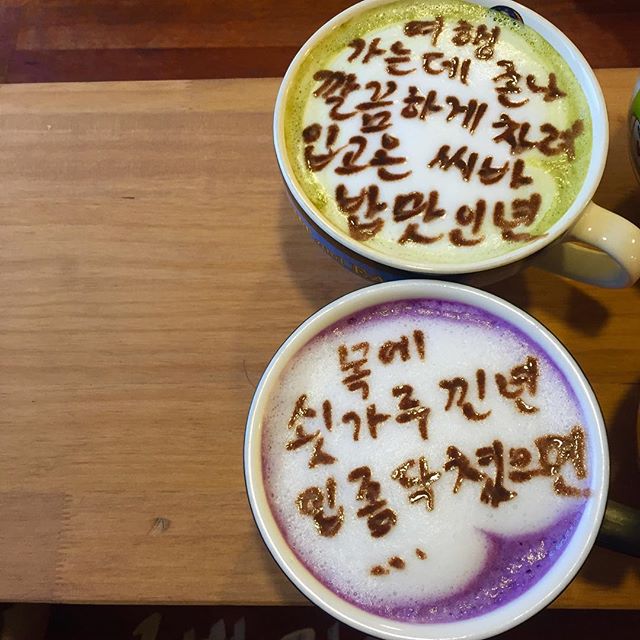 여행
가는데 존나
깔끔하게 차려
입고온 씨바
밥맛인년
목에
쇳가루 낀년
입좀닥쳤으면
...